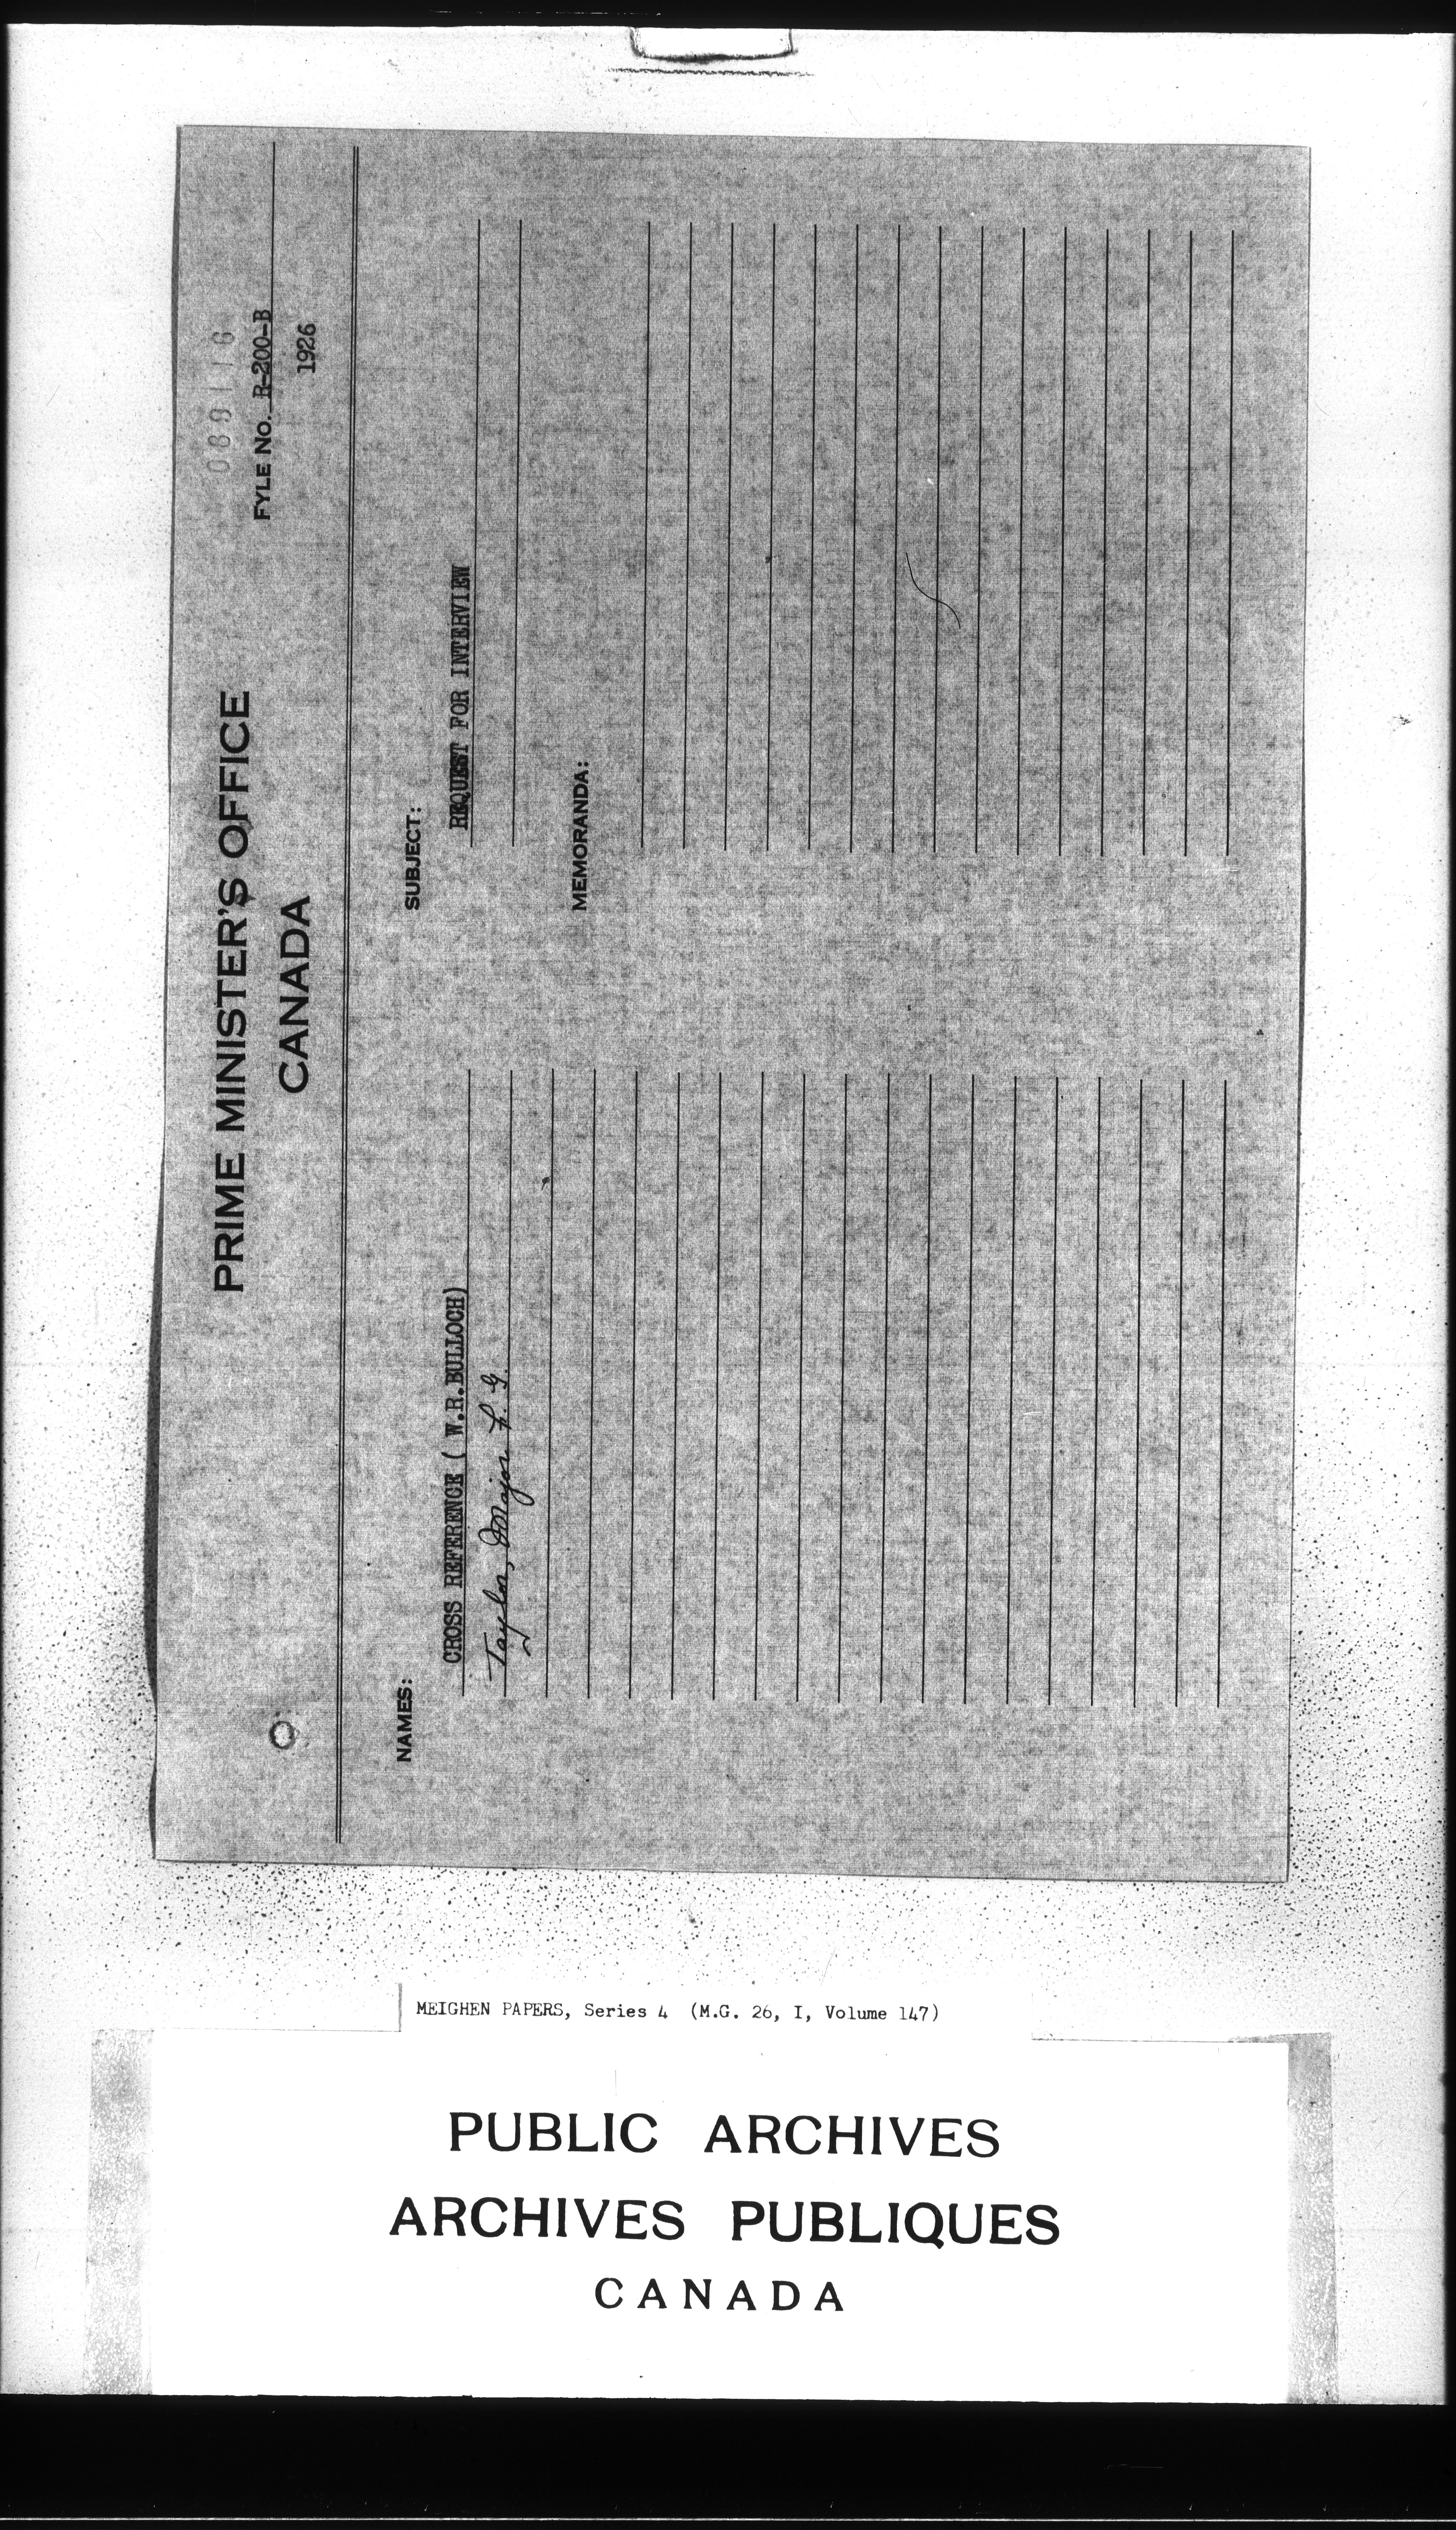 089116
PRIME MINISTER'S OFFICE
CANADA
FYLE No. R-200-B
1926
NAMES:
CROSS REFERENCE ( W.R.BULLOCH)
Taylor, Major L. G.
SUBJECT:
REQUEST FOR INTERVIEW
MEMORANDA:
MEIGHEN PAPERS, Series 4 (M.G. 26, I, Volume 147)
PUBLIC ARCHIVES
ARCHIVES PUBLIQUES
CANADA